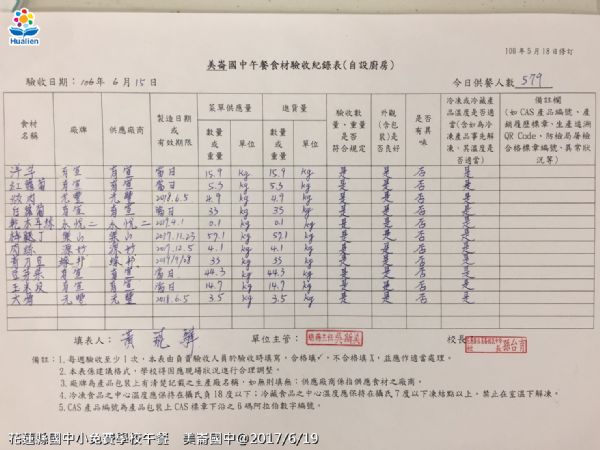 Hualien
108年5月18日修訂
美崙國中午餐食材驗收紀錄表(自設廚房)
驗收日期：106年6月15日
今日供餐人數 579
食材名稱 廠牌 供應廠商 製造日期或有效期限 菜單供應量 進貨量 驗收數量、重量是否符合規定 外觀(含包裝)是否良好 是否有異味 冷凍或冷藏產品溫度是否適當(含如為冷凍產品事先解凍，其溫度是否適當) 備註欄(如CAS產品編號、產銷履歷標章、生產追溯QR Code、防檢局屠檢合格標章編號、異常狀況等)
數量或重量 單位 數量或重量 單位
洋芋 有宜 有宜 當日 15.9 kg 15.9 kg 是 是 否 是
紅蘿蔔 有宜 有宜 當日 5.3 kg 5.3 kg 是 是 否 是
元豐 元豐 2018.6.5 4.9 kg 4.9 kg 是 是 否 是
白蘿蔔 有宜 有宜 當日 33 kg 33 kg 是 是 否 是
永悅二 永悅二 2019.4.1 0.1 kg 0.1 kg 是 是 否 是
2017.11.23 57.1 kg 57.1 kg 是 是 否 是
肉絲 2017.12.5 4.1 kg 4.1 kg 是 是 否 是
2019/9/28 33 kg 33 kg 是 是 否 是
豆芽菜 有宜 有宜 當日 44.3 kg 44.3 kg 是 是 否 是
有宜 有宜 當日 14.7 kg 14.7 kg 是 是 否 是
大骨 元豐 元豐 2018.6.5 3.5 kg 3.5 kg 是 是 否 是
填表人： 黃 單位主管： 校長
備註：1.每週驗收至少1次，本表由負責驗收人員於驗收時填寫，合格填✓，不合格填X，並應作適當處理。
2.本表係建議格式，學校得因應現場狀況進行合理調整。
3.廠牌為產品包裝上有清楚記載之生產廠名稱，如無則填無；供應廠商係指供應食材之廠商。
4.冷凍食品之中心溫度應保持在攝氏負18度以下；冷藏食品之中心溫度應保持在攝氏7度以下凍結點以上，禁止在室溫下解凍。
5.CAS產品編號為產品包裝上CAS標章下沿之6碼阿拉伯數字編號。
花蓮縣國中小免費學校午餐 美崙國中@2017/6/19